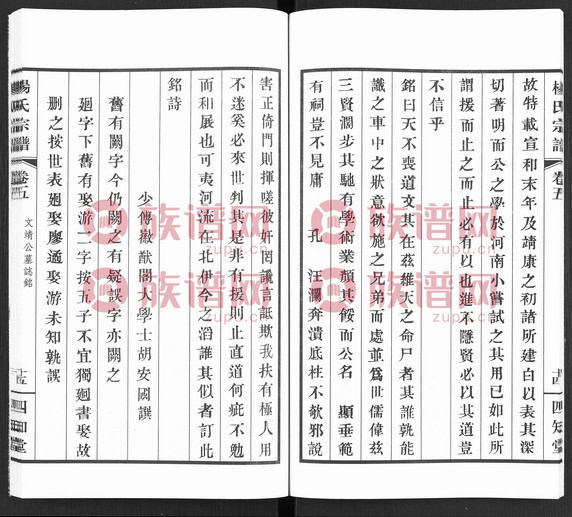 楊氏宗譜
卷五
十四
四知堂
故特載宣和末年及靖康之初諸所建白以表其深
切著明而公之學於河南小嘗試之其用已如此所
謂援而止之而止必有以也進不隱賢必以其道豈
不信乎
銘曰天不喪道文其在茲維天之命尸者其誰孰能
識之車中之狀意欲施之兄弟而處並為世儒偉茲
三賢濶步其馳有學術業顏其餒而公名 顯垂範
有祠豈不見庸 孔 汪瀾奔潰底柱不欹邪說
害正倚門則揮嗟彼奸罔讒言詆欺我扶有極人用
不迷奚必來世判其是非有援則止直道何疵不勉
而和展也可夷河流在北伊今之滔誰其似者訂此
銘詩
少傅徽猷閣大學士胡安國譔
舊有闕字今仍闕之有疑誤字亦闕之
廻字下舊有娶游二字按五子不宜獨廻書娶故
刪之按世表廻娶廖通娶游未知孰誤
楊氏宗譜
卷五
文靖公墓誌銘
十五
四知堂
族谱网
族谱网
族谱网
族谱网
www.zupu.cn
www.zupu.cn
www.zupu.cn
www.zupu.cn